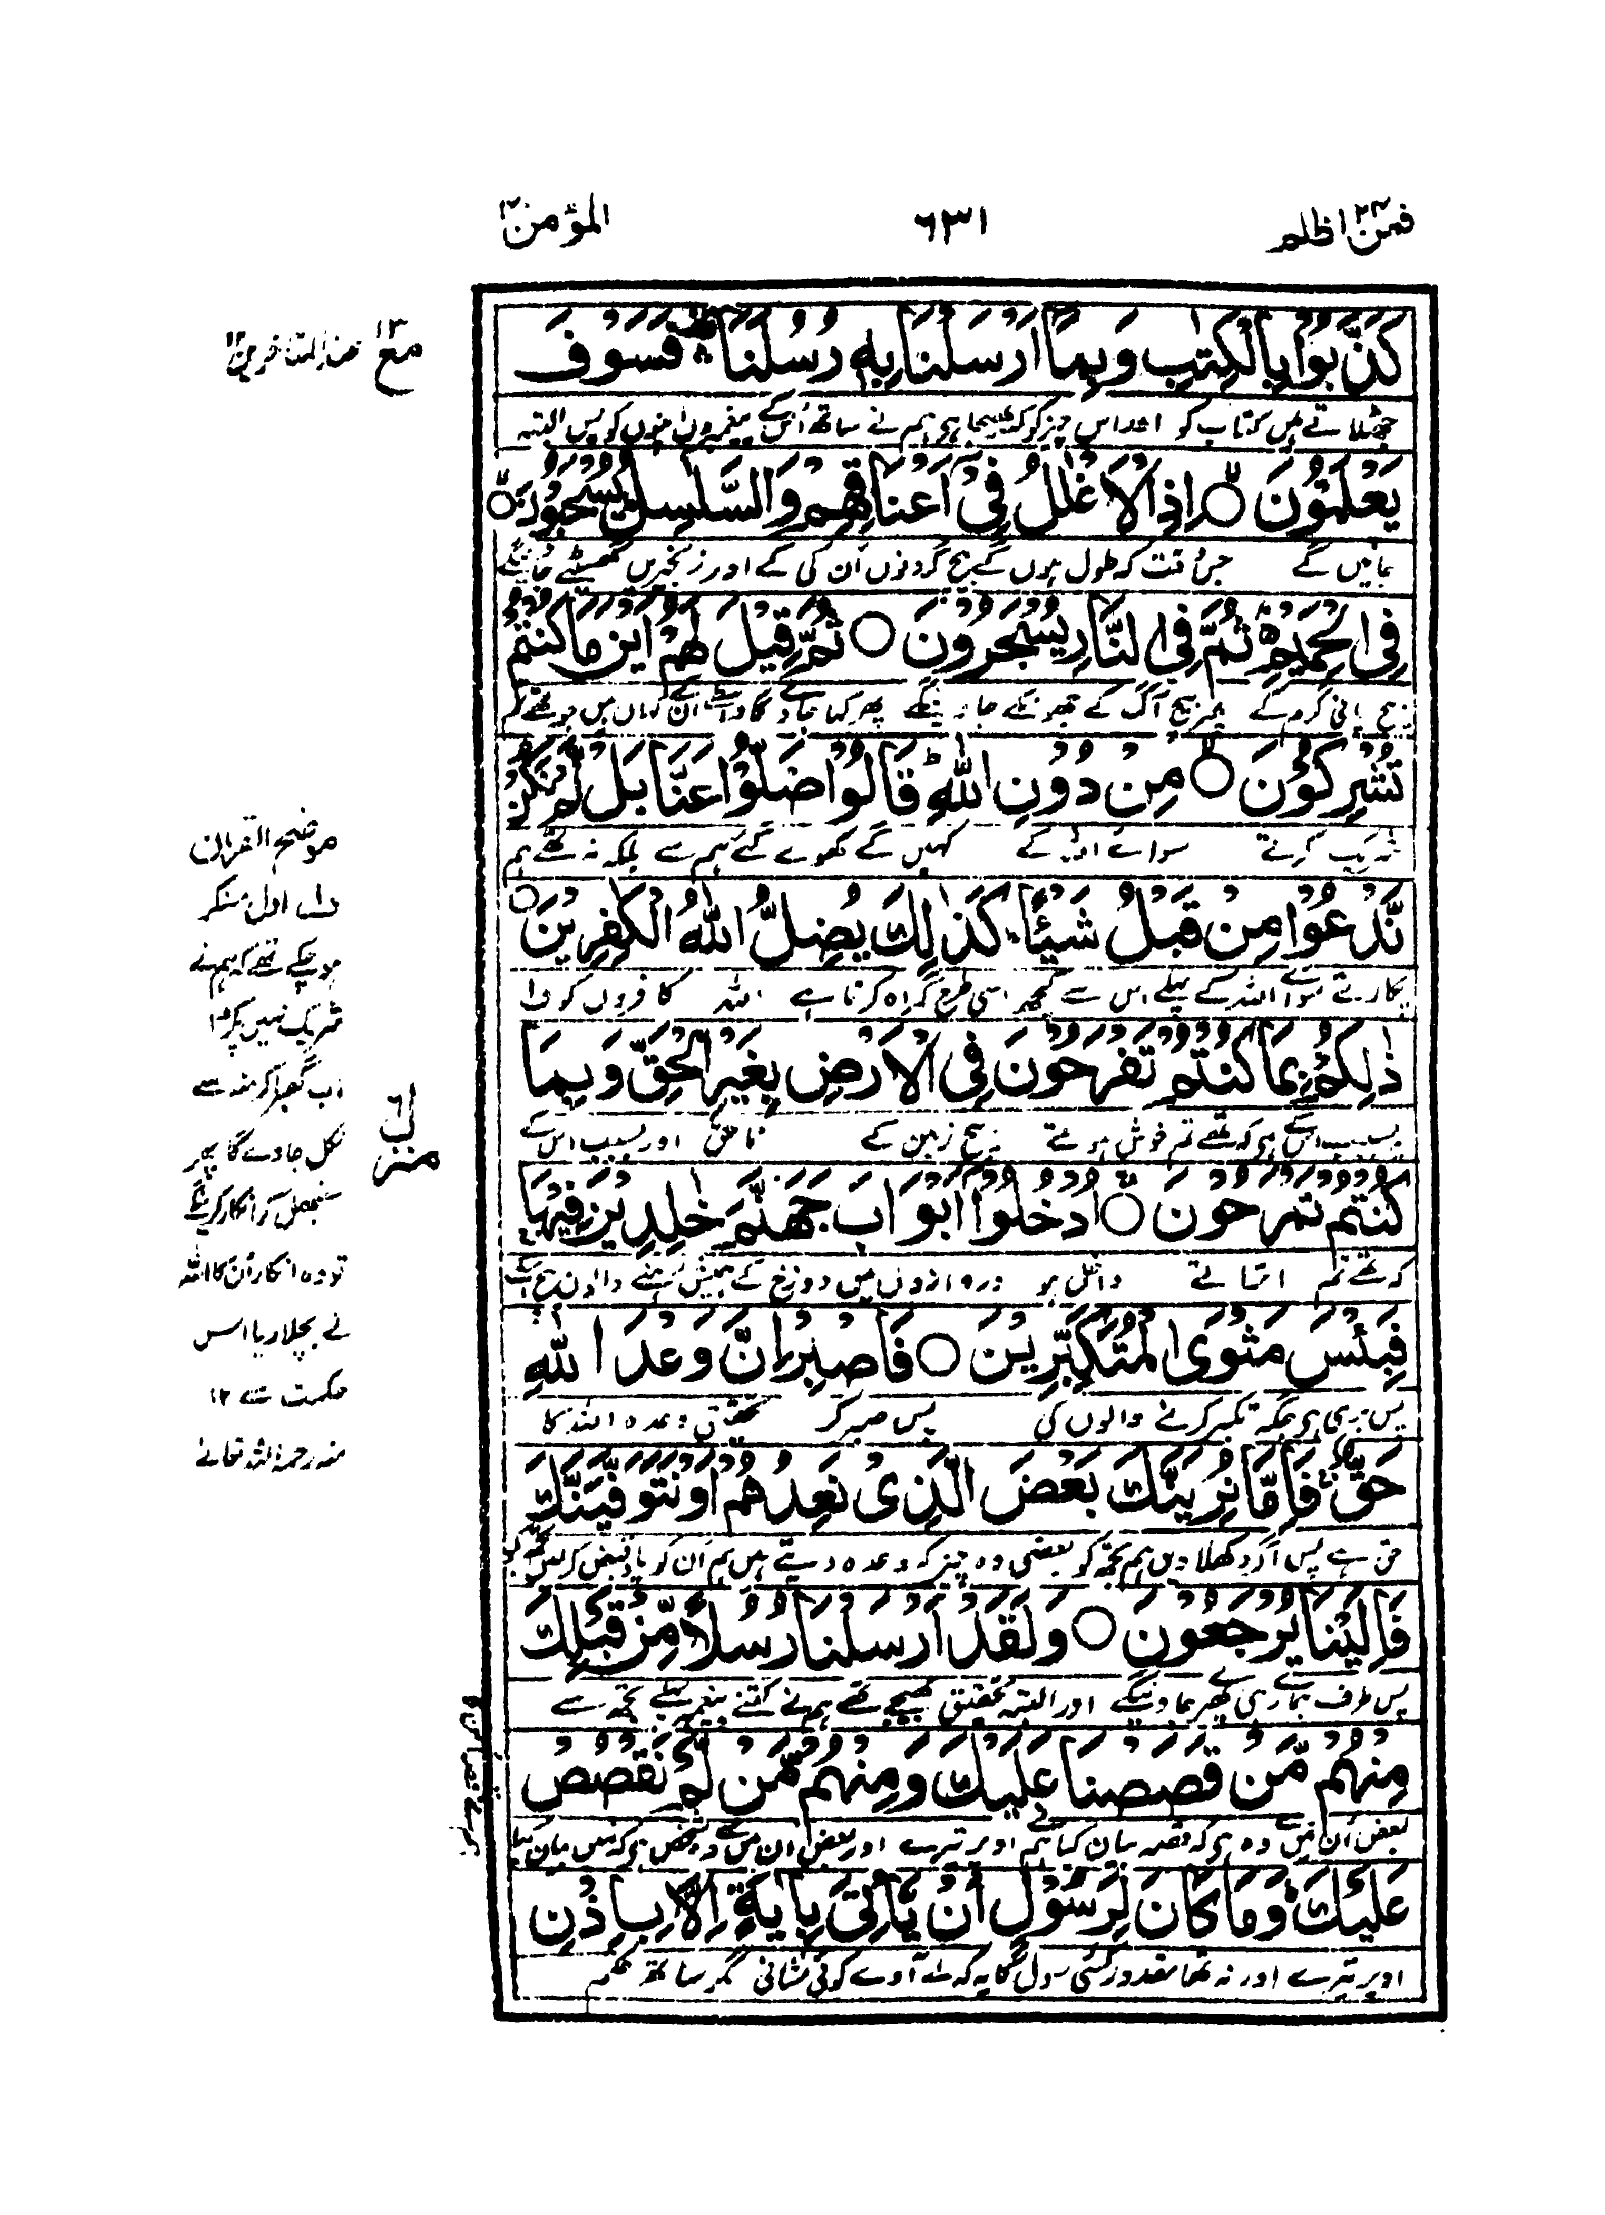 فمن اظلم ٢٤
٦٣١
المؤمن ٤٠
كَذَّبُوا بِالْكِتٰبِ وَبِمَا أَرْسَلْنَا بِهٖ رُسُلَنَا فَسَوْفَ
جھٹلاتے ہیں کتاب کو اور اس چیز کو کہ بھیجا ہے ہم نے ساتھ اس کے پیغمبروں اپنوں کو پس البتہ
يَعْلَمُوْنَ ○ اِذِ الْاَغْلٰلُ فِيْ اَعْنَاقِهِمْ وَالسَّلٰسِلُ يُسْحَبُوْنَ ○
جانیں گے جس وقت کہ طوق ہوں گے بیچ گردنوں ان کی کے اور زنجیریں گھسیٹے جائینگے
فِى الْحَمِيْمِ ثُمَّ فِى النَّارِ يُسْجَرُوْنَ ○ ثُمَّ قِيْلَ لَهُمْ اَيْنَ مَا كُنْتُمْ
بیچ پانی گرم کے پھر بیچ آگ کے جھونکے جاوینگے پھر کہا جاوے گا واسطے ان کے کہاں ہیں جو تھے تم
تُشْرِكُوْنَ ○ مِنْ دُوْنِ اللّٰهِ قَالُوْا ضَلُّوْا عَنَّا بَلْ لَّمْ نَكُنْ
شریک کرتے سوائے اللہ کے کہیں گے کھوئے گئے ہم سے بلکہ نہ تھے ہم
نَّدْعُوْا مِنْ قَبْلُ شَيْئًا كَذٰلِكَ يُضِلُّ اللّٰهُ الْكٰفِرِيْنَ ○
پکارتے سوائے اللہ کے پہلے اس سے کچھ اسی طرح گمراہ کرتا ہے اللہ کافروں کو ف۱
ذٰلِكُمْ بِمَا كُنْتُمْ تَفْرَحُوْنَ فِى الْاَرْضِ بِغَيْرِ الْحَقِّ وَبِمَا
یہ بسبب اس کے ہے کہ تھے تم خوش ہوتے بیچ زمین کے ناحق اور بسبب اس کے
كُنْتُمْ تَمْرَحُوْنَ ○ اُدْخُلُوْا اَبْوَابَ جَهَنَّمَ خٰلِدِيْنَ فِيْهَا
کہ تھے تم اتراتے داخل ہو دروازوں میں دوزخ کے ہمیش رہنے والے بیچ اس کے
فَبِئْسَ مَثْوَى الْمُتَكَبِّرِيْنَ ○ فَاصْبِرْ اِنَّ وَعْدَ اللّٰهِ
پس بری ہے جگہ تکبر کرنے والوں کی پس صبر کر تحقیق وعدہ اللہ کا
حَقٌّ فَاِمَّا نُرِيَنَّكَ بَعْضَ الَّذِيْ نَعِدُهُمْ اَوْ نَتَوَفَّيَنَّكَ
حق ہے پس اگر دکھلا دیں ہم تجھ کو بعضی وہ چیز کہ وعدہ دیتے ہیں ہم ان کو یا قبض کرلیں تجھ کو
فَاِلَيْنَا يُرْجَعُوْنَ ○ وَلَقَدْ اَرْسَلْنَا رُسُلًا مِّنْ قَبْلِكَ
پس طرف ہماری پھیرے جاوینگے اور البتہ تحقیق بھیجے تھے ہم نے کتنے پیغمبر پہلے تجھ سے
مِنْهُمْ مَّنْ قَصَصْنَا عَلَيْكَ وَمِنْهُمْ مَّنْ لَّمْ نَقْصُصْ
بعض ان میں سے وہ ہے کہ قصہ بیان کیا ہم نے اوپر تیرے اور بعض ان میں سے وہ شخص ہے کہ نہیں بیان کیا
عَلَيْكَ وَمَا كَانَ لِرَسُوْلٍ اَنْ يَّاْتِيَ بِاٰيَةٍ اِلَّا بِاِذْنِ
اوپر تیرے اور نہ تھا مقدور کسی رسول کا یہ کہ لے آوے کوئی نشانی مگر ساتھ حکم
مع ١٣
عند المتاخرين ١٢
موضح القرآن
ف۱ اول منکر
ہو چکے تھے کہ ہم نے
شریک نہیں پکڑا
اب گھبرا کر منہ سے
نکل جاوے گا پھر
سنبھل کر انکار کرینگے
تو وہ انکار ان کا اللہ
نے بچلا دیا اس
حکمت سے ١٢
منہ رحمہ اللہ تعالے
منزل ٦